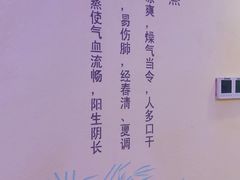 凉爽，燥气当令，人多口干
，易伤肺，经春清、夏调
蒸使气血流畅，阳生阴长